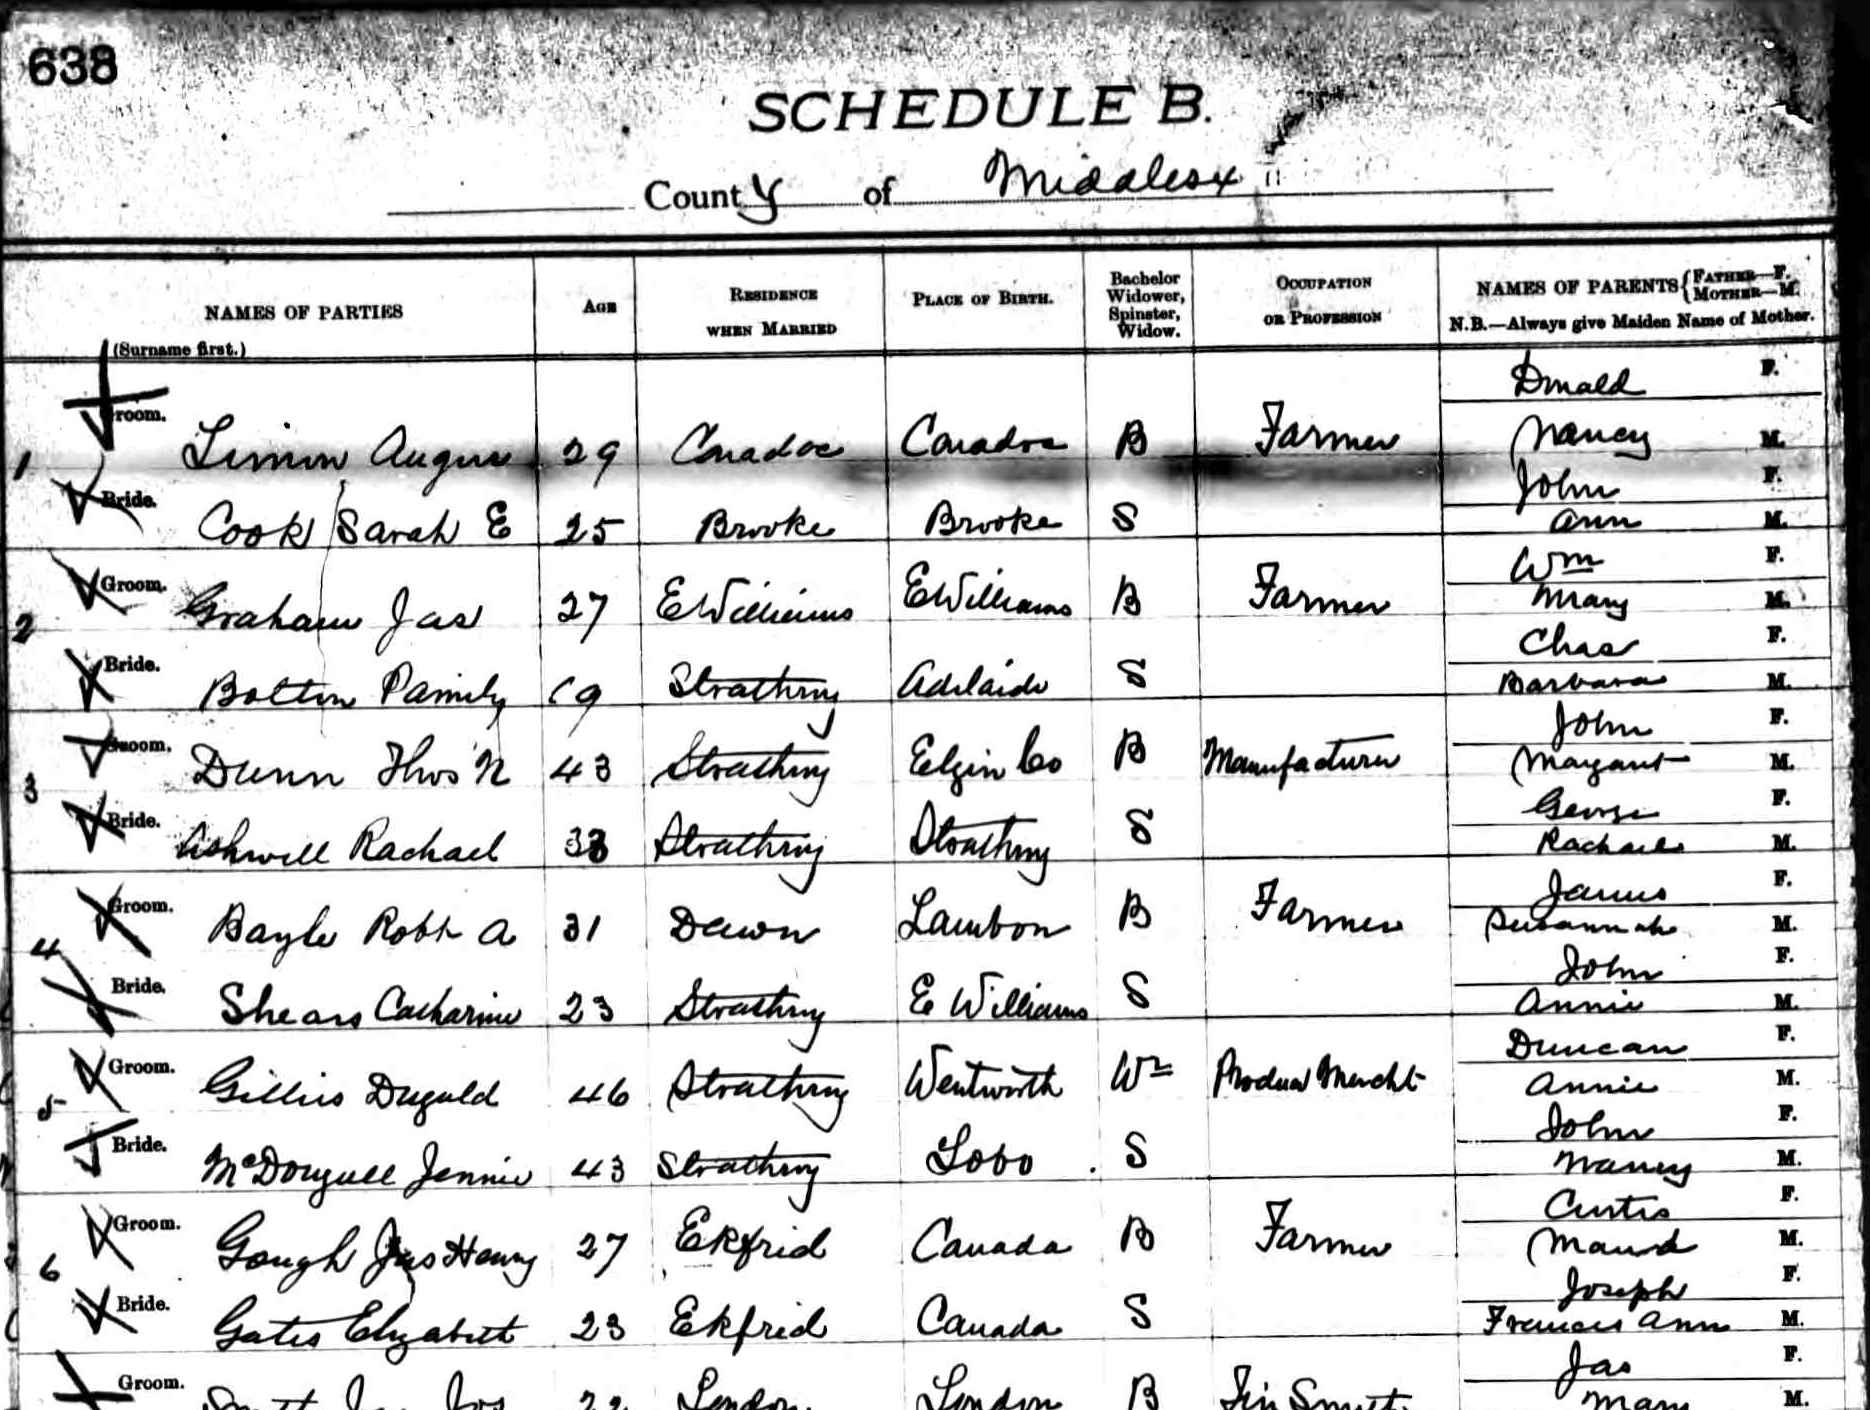 638
SCHEDULE B.
County of Middlesex
NAMES OF PARTIES
(Surname first.)
AGE
RESIDENCE
WHEN MARRIED
PLACE OF BIRTH.
Bachelor
Widower,
Spinster,
Widow.
OCCUPATION
OR PROFESSION
NAMES OF PARENTS { FATHER—F.
MOTHER—M.
N.B.—Always give Maiden Name of Mother.
Donald F.
1 Groom. Limon Angus 29 Caradoc Caradoc B Farmer Nancy M.
John F.
Bride. Cook Sarah E 25 Brooke Brooke S Ann M.
Wm F.
2 Groom. Graham Jas 27 E Williams E Williams B Farmer Mary M.
Chas F.
Bride. Bolton Pamily 19 Strathroy Adelaide S Barbara M.
John F.
3 Groom. Dunn Thos N 43 Strathroy Elgin Co B Manufacturer Margaret M.
George F.
Bride. Ashwell Rachael 33 Strathroy Strathroy S Rachael M.
James F.
4 Groom. Bayle Robt A 31 Dawn Lambton B Farmer Susannah M.
John F.
Bride. Shears Catharine 23 Strathroy E Williams S Annie M.
Duncan F.
5 Groom. Gillies Dugald 46 Strathroy Wentworth Wr Produce Mercht Annie M.
John F.
Bride. McDougall Jennie 43 Strathroy Lobo S Nancy M.
Curtis F.
6 Groom. Gough Jas Henry 27 Ekfrid Canada B Farmer Maund M.
Joseph F.
Bride. Gates Elizabeth 23 Ekfrid Canada S Frances Ann M.
Jas F.
Groom. Smith Jos 22 London London B Tin Smith Mary M.